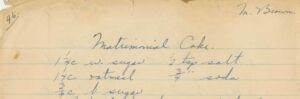 96.
M. Brown
Matrimonial Cake.
1½c w. sugar ½ tsp salt
1½c oatmeal ¾ " soda
¾c b sugar